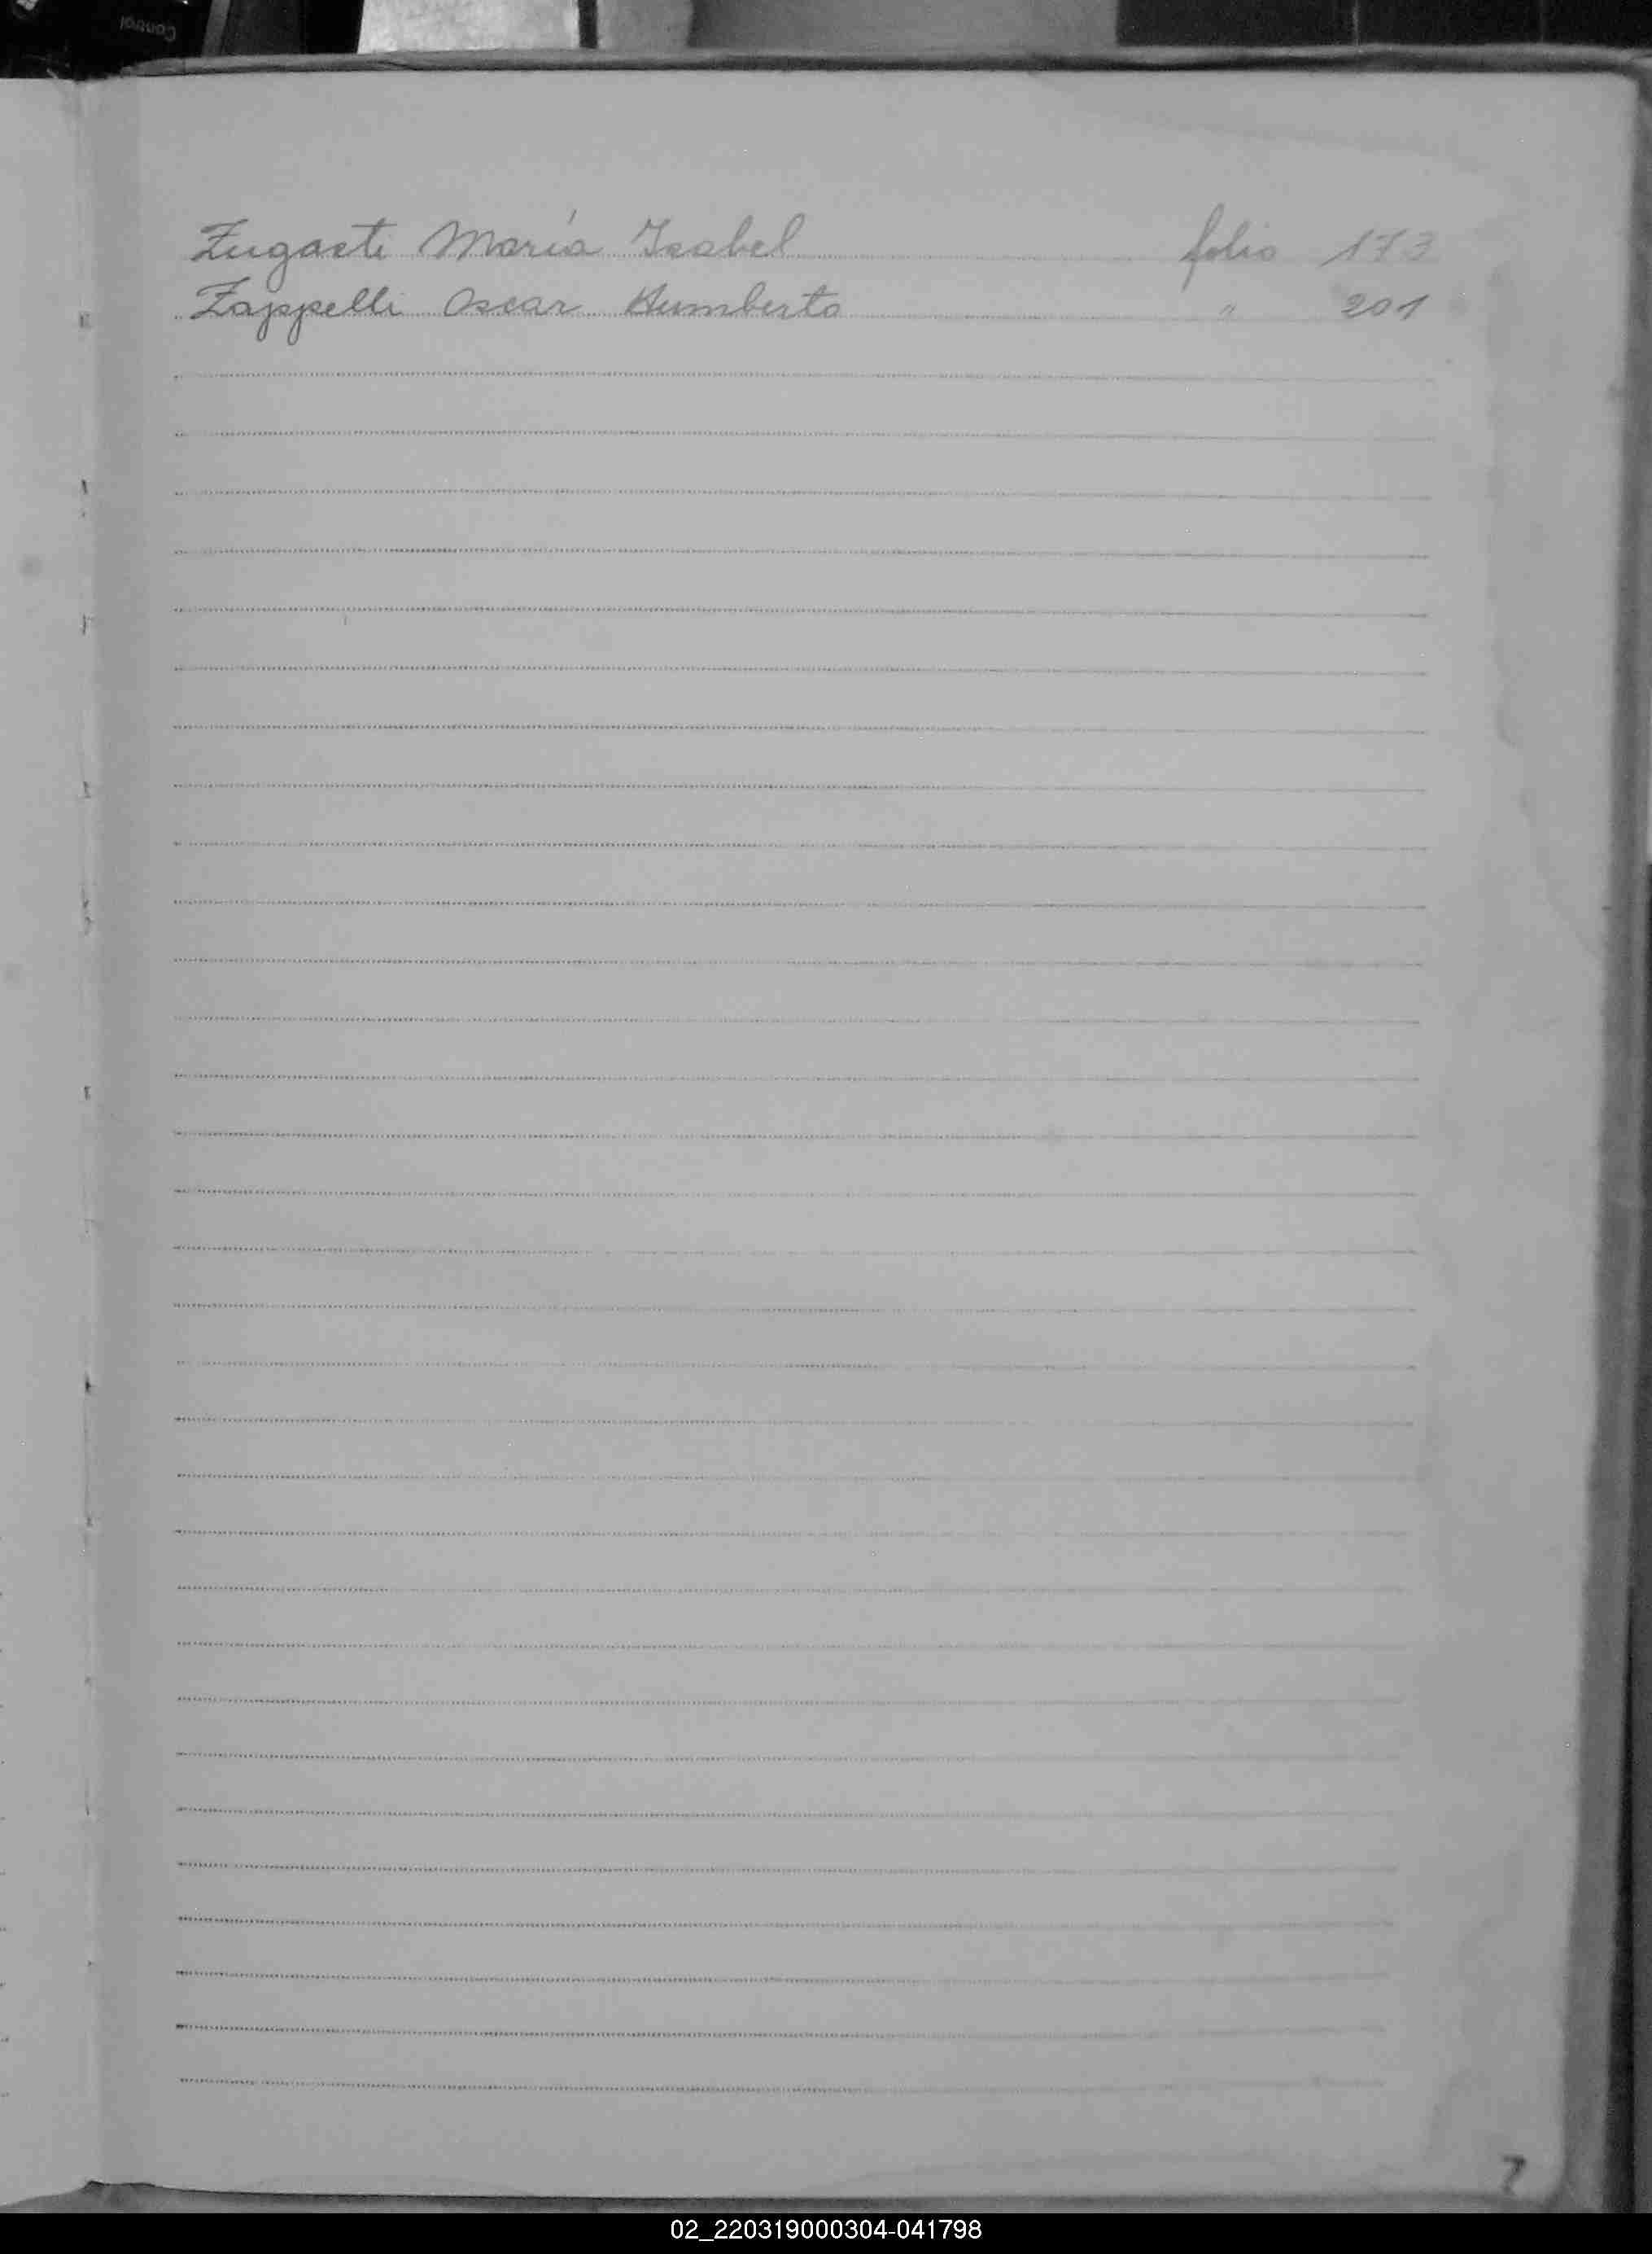 Zugasti María Isabel folio 173
Zappelli Oscar Humberto " 201
Z
02_220319000304-041798